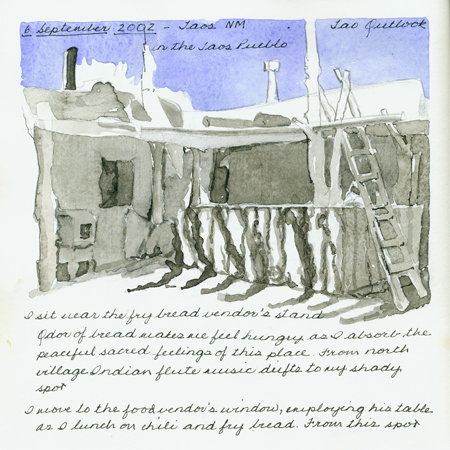 6 September 2002 - Taos NM Tao Outlook
in the Taos Pueblo
I sit near the fry bread vendor's stand
Odor of bread makes me feel hungry as I absorb the
peaceful sacred feelings of this place. From north
village Indian flute music drifts to my shady
spot
I move to the food vendor's window, employing his table
as I lunch on chili and fry bread. From this spot